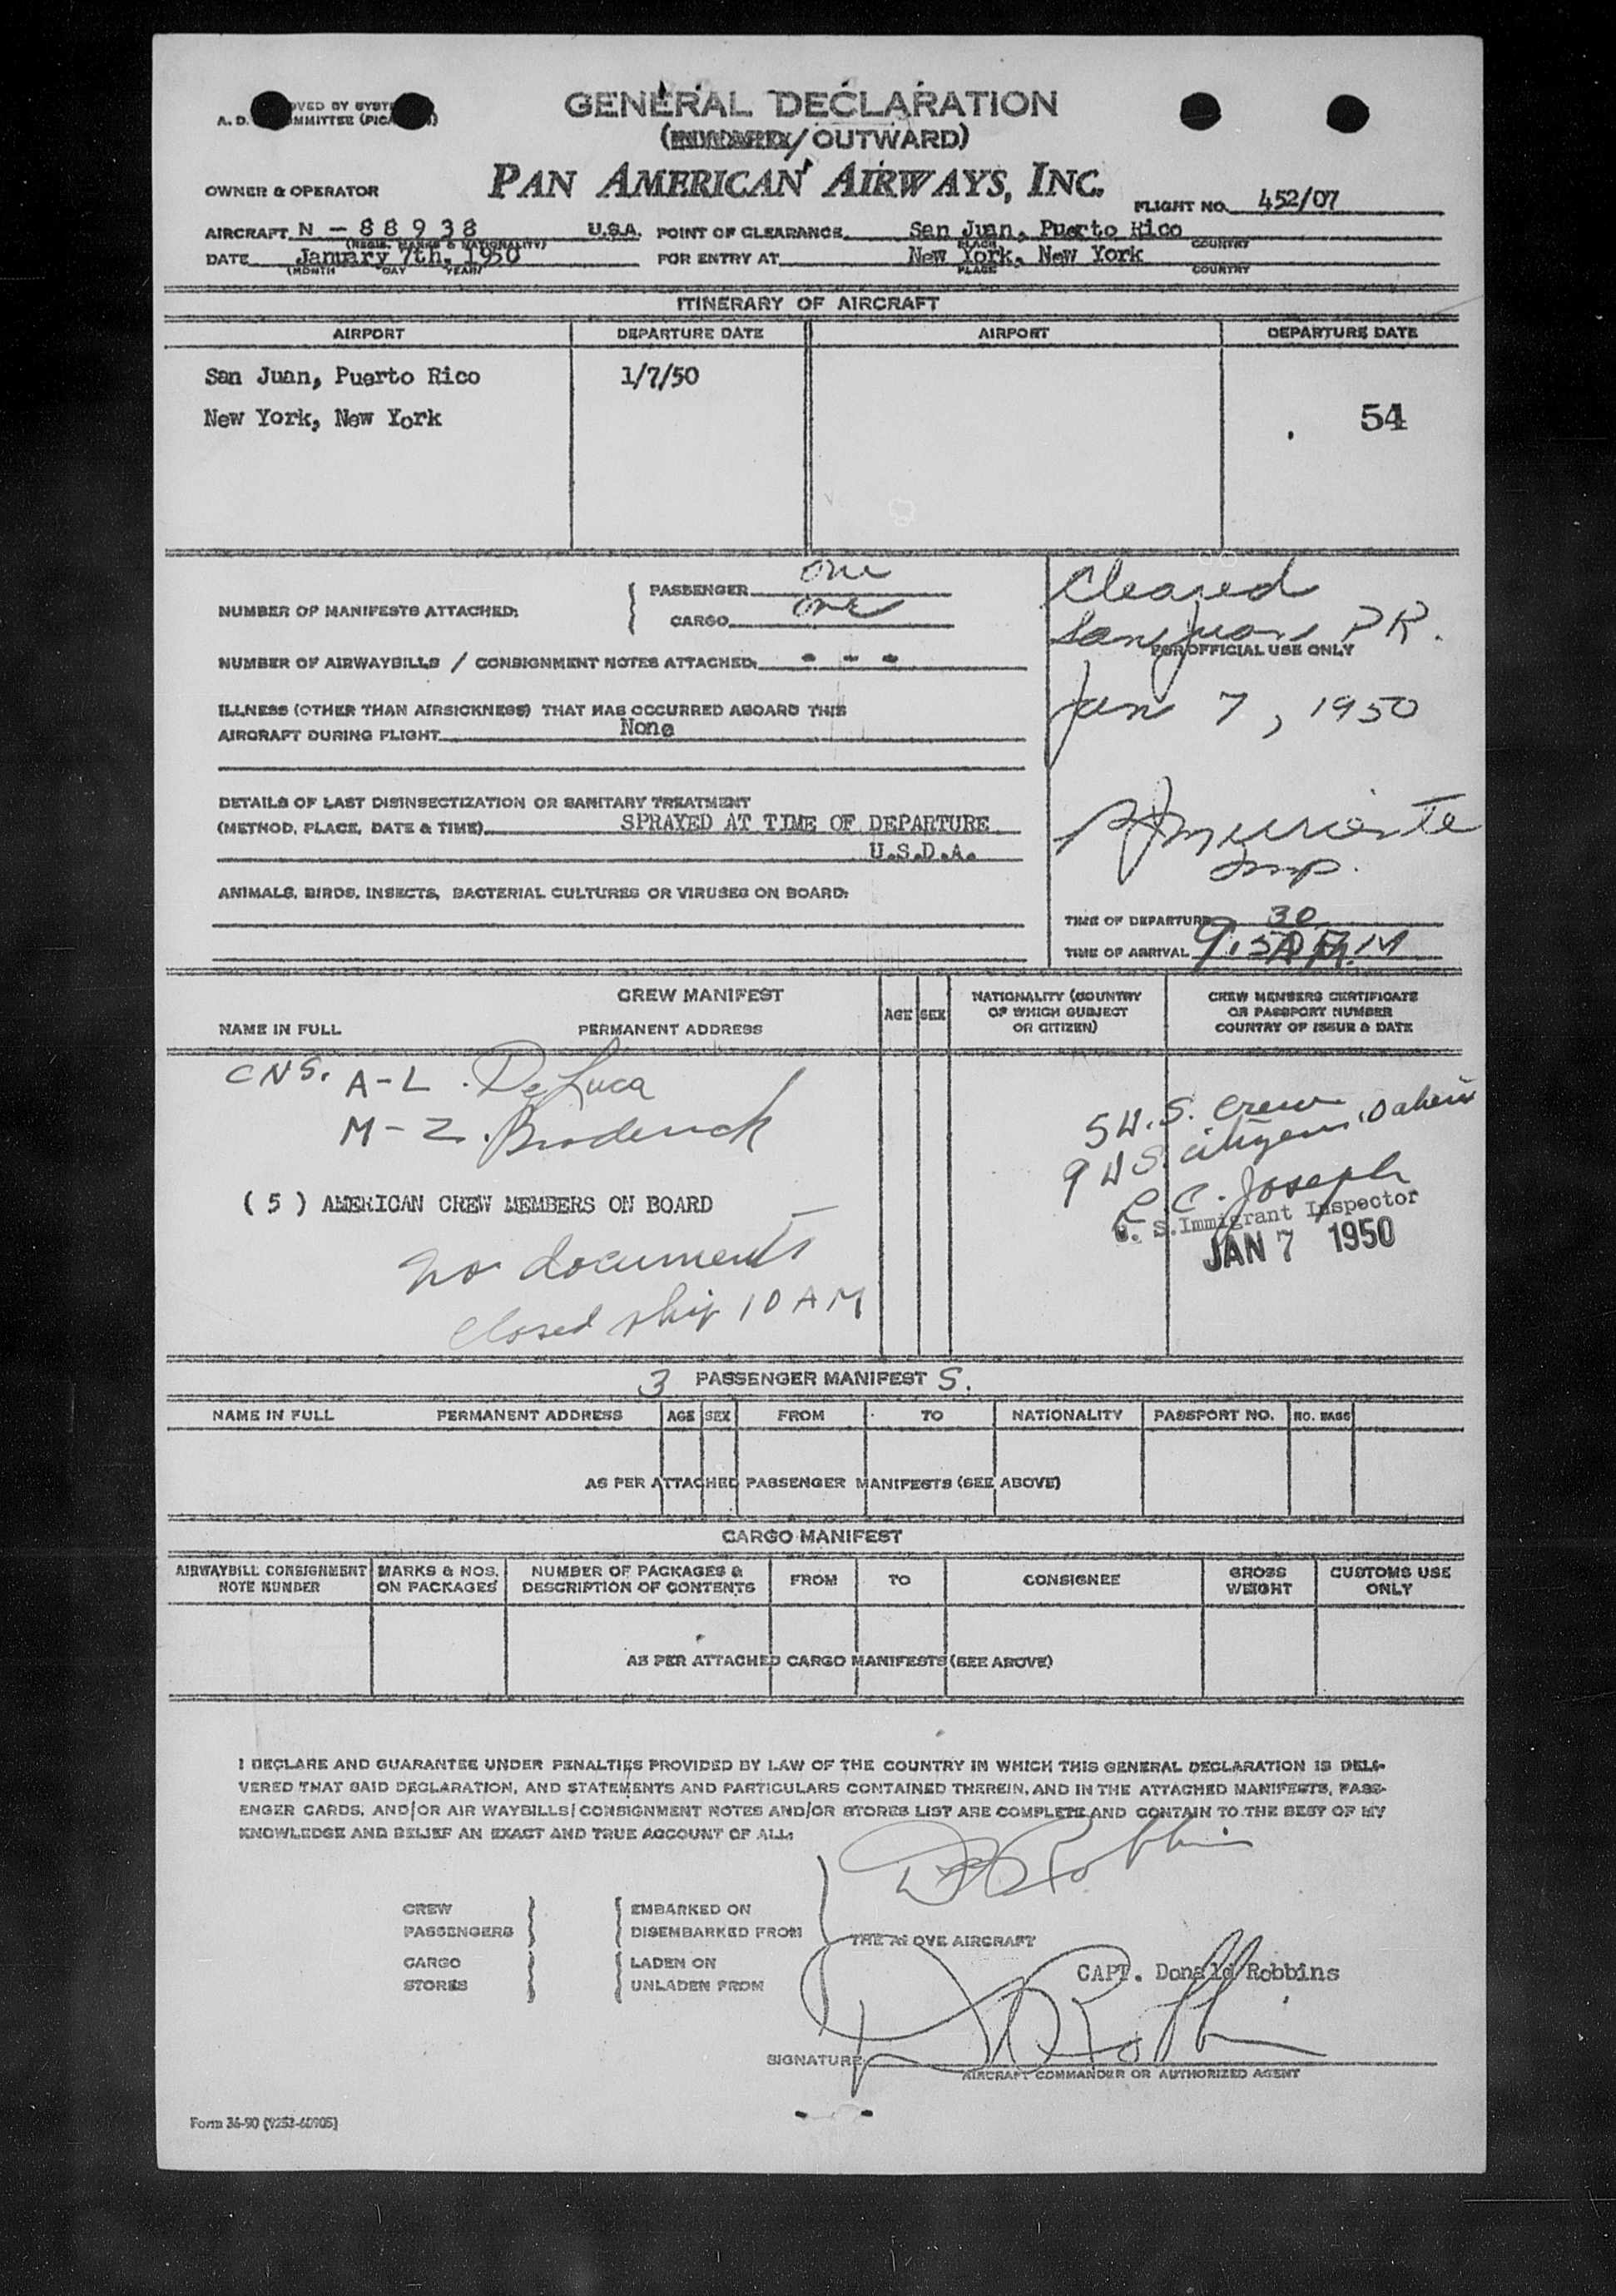 GENERAL DECLARATION
OVED BY SYST
A. D. MMITTEE (PICA
(/OUTWARD)
PAN AMERICAN AIRWAYS, INC.
OWNER & OPERATOR
FLIGHT NO. 452/07
AIRCRAFT N - 88938 U.S.A. POINT OF CLEARANCE San Juan, Puerto Rico
(REGIS. MARKS & NATIONALITY) PLACE COUNTRY
DATE January 7th, 1950 FOR ENTRY AT New York, New York
(MONTH DAY YEAR) PLACE COUNTRY
ITINERARY OF AIRCRAFT
AIRPORT DEPARTURE DATE AIRPORT DEPARTURE DATE
San Juan, Puerto Rico 1/7/50
New York, New York 54
NUMBER OF MANIFESTS ATTACHED: PASSENGER one
CARGO one
NUMBER OF AIRWAYBILLS / CONSIGNMENT NOTES ATTACHED: - - -
ILLNESS (OTHER THAN AIRSICKNESS) THAT HAS OCCURRED ABOARD THIS
AIRCRAFT DURING FLIGHT None
DETAILS OF LAST DISINSECTIZATION OR SANITARY TREATMENT
(METHOD, PLACE, DATE & TIME) SPRAYED AT TIME OF DEPARTURE
U.S.D.A.
ANIMALS, BIRDS, INSECTS, BACTERIAL CULTURES OR VIRUSES ON BOARD:
Cleared
San Juan PR.
FOR OFFICIAL USE ONLY
Jan 7, 1950
Insp.
TIME OF DEPARTURE 30
TIME OF ARRIVAL
CREW MANIFEST
NAME IN FULL PERMANENT ADDRESS AGE SEX NATIONALITY (COUNTRY OF WHICH SUBJECT OR CITIZEN) CREW MEMBERS CERTIFICATE OR PASSPORT NUMBER COUNTRY OF ISSUE & DATE
CNS. A-L. De Luca
M-Z. Broderick
5 U.S. Crew
9 U S. citizens, 0 aliens
R C. Joseph
U. S. Immigrant Inspector
JAN 7 1950
( 5 ) AMERICAN CREW MEMBERS ON BOARD
no documents
closed ship 10 AM
3 PASSENGER MANIFEST S.
NAME IN FULL PERMANENT ADDRESS AGE SEX FROM TO NATIONALITY PASSPORT NO. NO. BAGS
AS PER ATTACHED PASSENGER MANIFESTS (SEE ABOVE)
CARGO MANIFEST
AIRWAYBILL CONSIGNMENT NOTE NUMBER MARKS & NOS. ON PACKAGES NUMBER OF PACKAGES & DESCRIPTION OF CONTENTS FROM TO CONSIGNEE GROSS WEIGHT CUSTOMS USE ONLY
AS PER ATTACHED CARGO MANIFESTS (SEE ABOVE)
I DECLARE AND GUARANTEE UNDER PENALTIES PROVIDED BY LAW OF THE COUNTRY IN WHICH THIS GENERAL DECLARATION IS DELI-
VERED THAT SAID DECLARATION, AND STATEMENTS AND PARTICULARS CONTAINED THEREIN, AND IN THE ATTACHED MANIFESTS, PASS-
ENGER CARDS, AND/OR AIR WAYBILLS/CONSIGNMENT NOTES AND/OR STORES LIST ARE COMPLETE AND CONTAIN TO THE BEST OF MY
KNOWLEDGE AND BELIEF AN EXACT AND TRUE ACCOUNT OF ALL:
D Robbins
CREW EMBARKED ON
PASSENGERS DISEMBARKED FROM
THE ABOVE AIRCRAFT
CARGO LADEN ON
STORES UNLADEN FROM
CAPT. Donald Robbins
SIGNATURE D Robbins
AIRCRAFT COMMANDER OR AUTHORIZED AGENT
Form 36-90 (9252-60905)